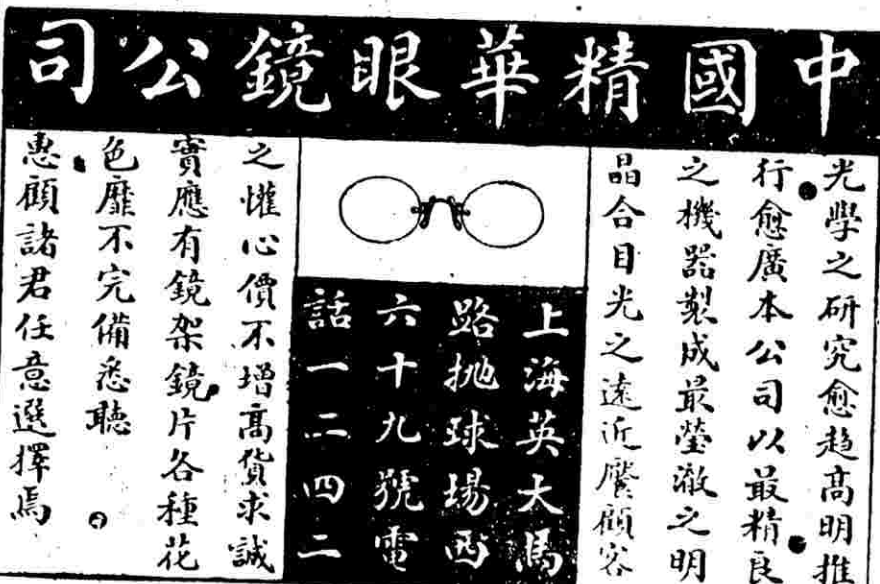 中國精華眼鏡公司
光學之研究愈趨高明推
行愈廣本公司以最精良
之機器製成最瑩澈之明
晶合目光之遠近饜顧客
上海英大馬
路拋球場西
六十九號電
話一二四二
之懽心價不增高貨求誠
實應有鏡架鏡片各種花
色靡不完備悉聽
惠顧諸君任意選擇焉